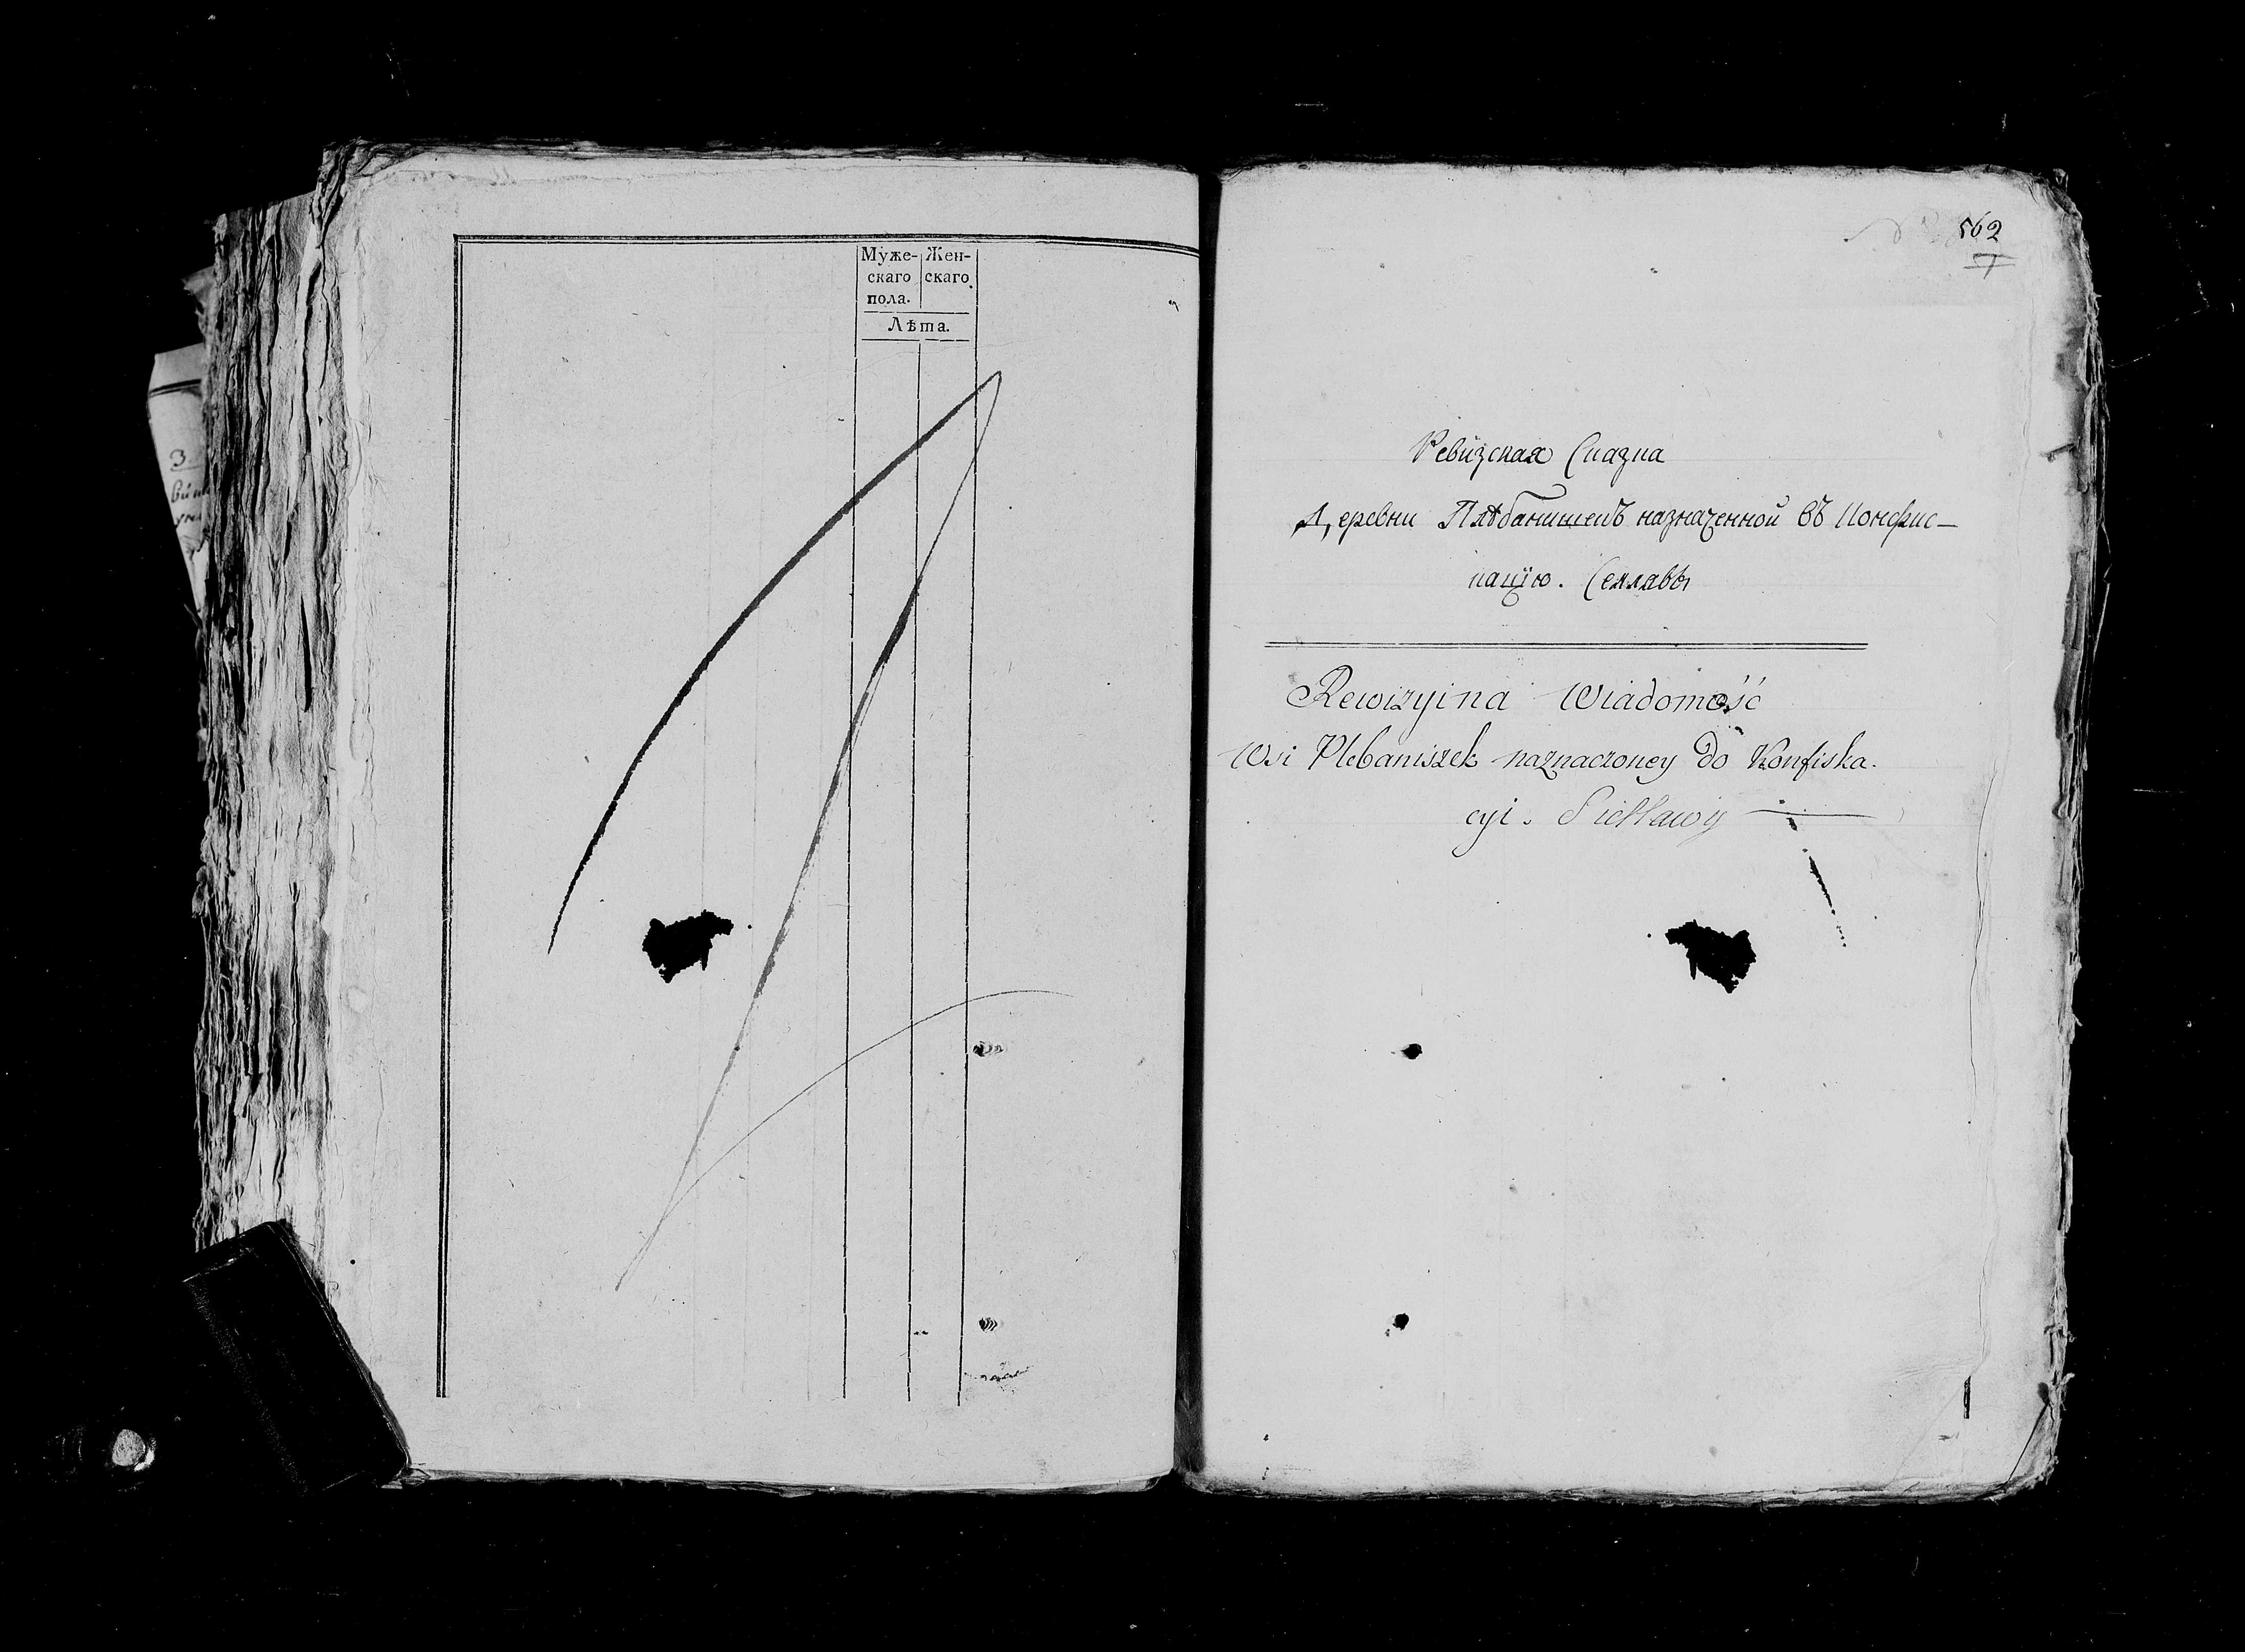 Муже-
скаго
пола.
Жен-
скаго
Лѣта.
562
Ревизская Сказка
Деревни Плѣбанишекъ назначенной въ Конфис-
кацїю. Селлавы
Rewizyina Wiadomość
Wsi Plebaniszek naznaczoney do Konfiska.
cyi. Siellawy
З